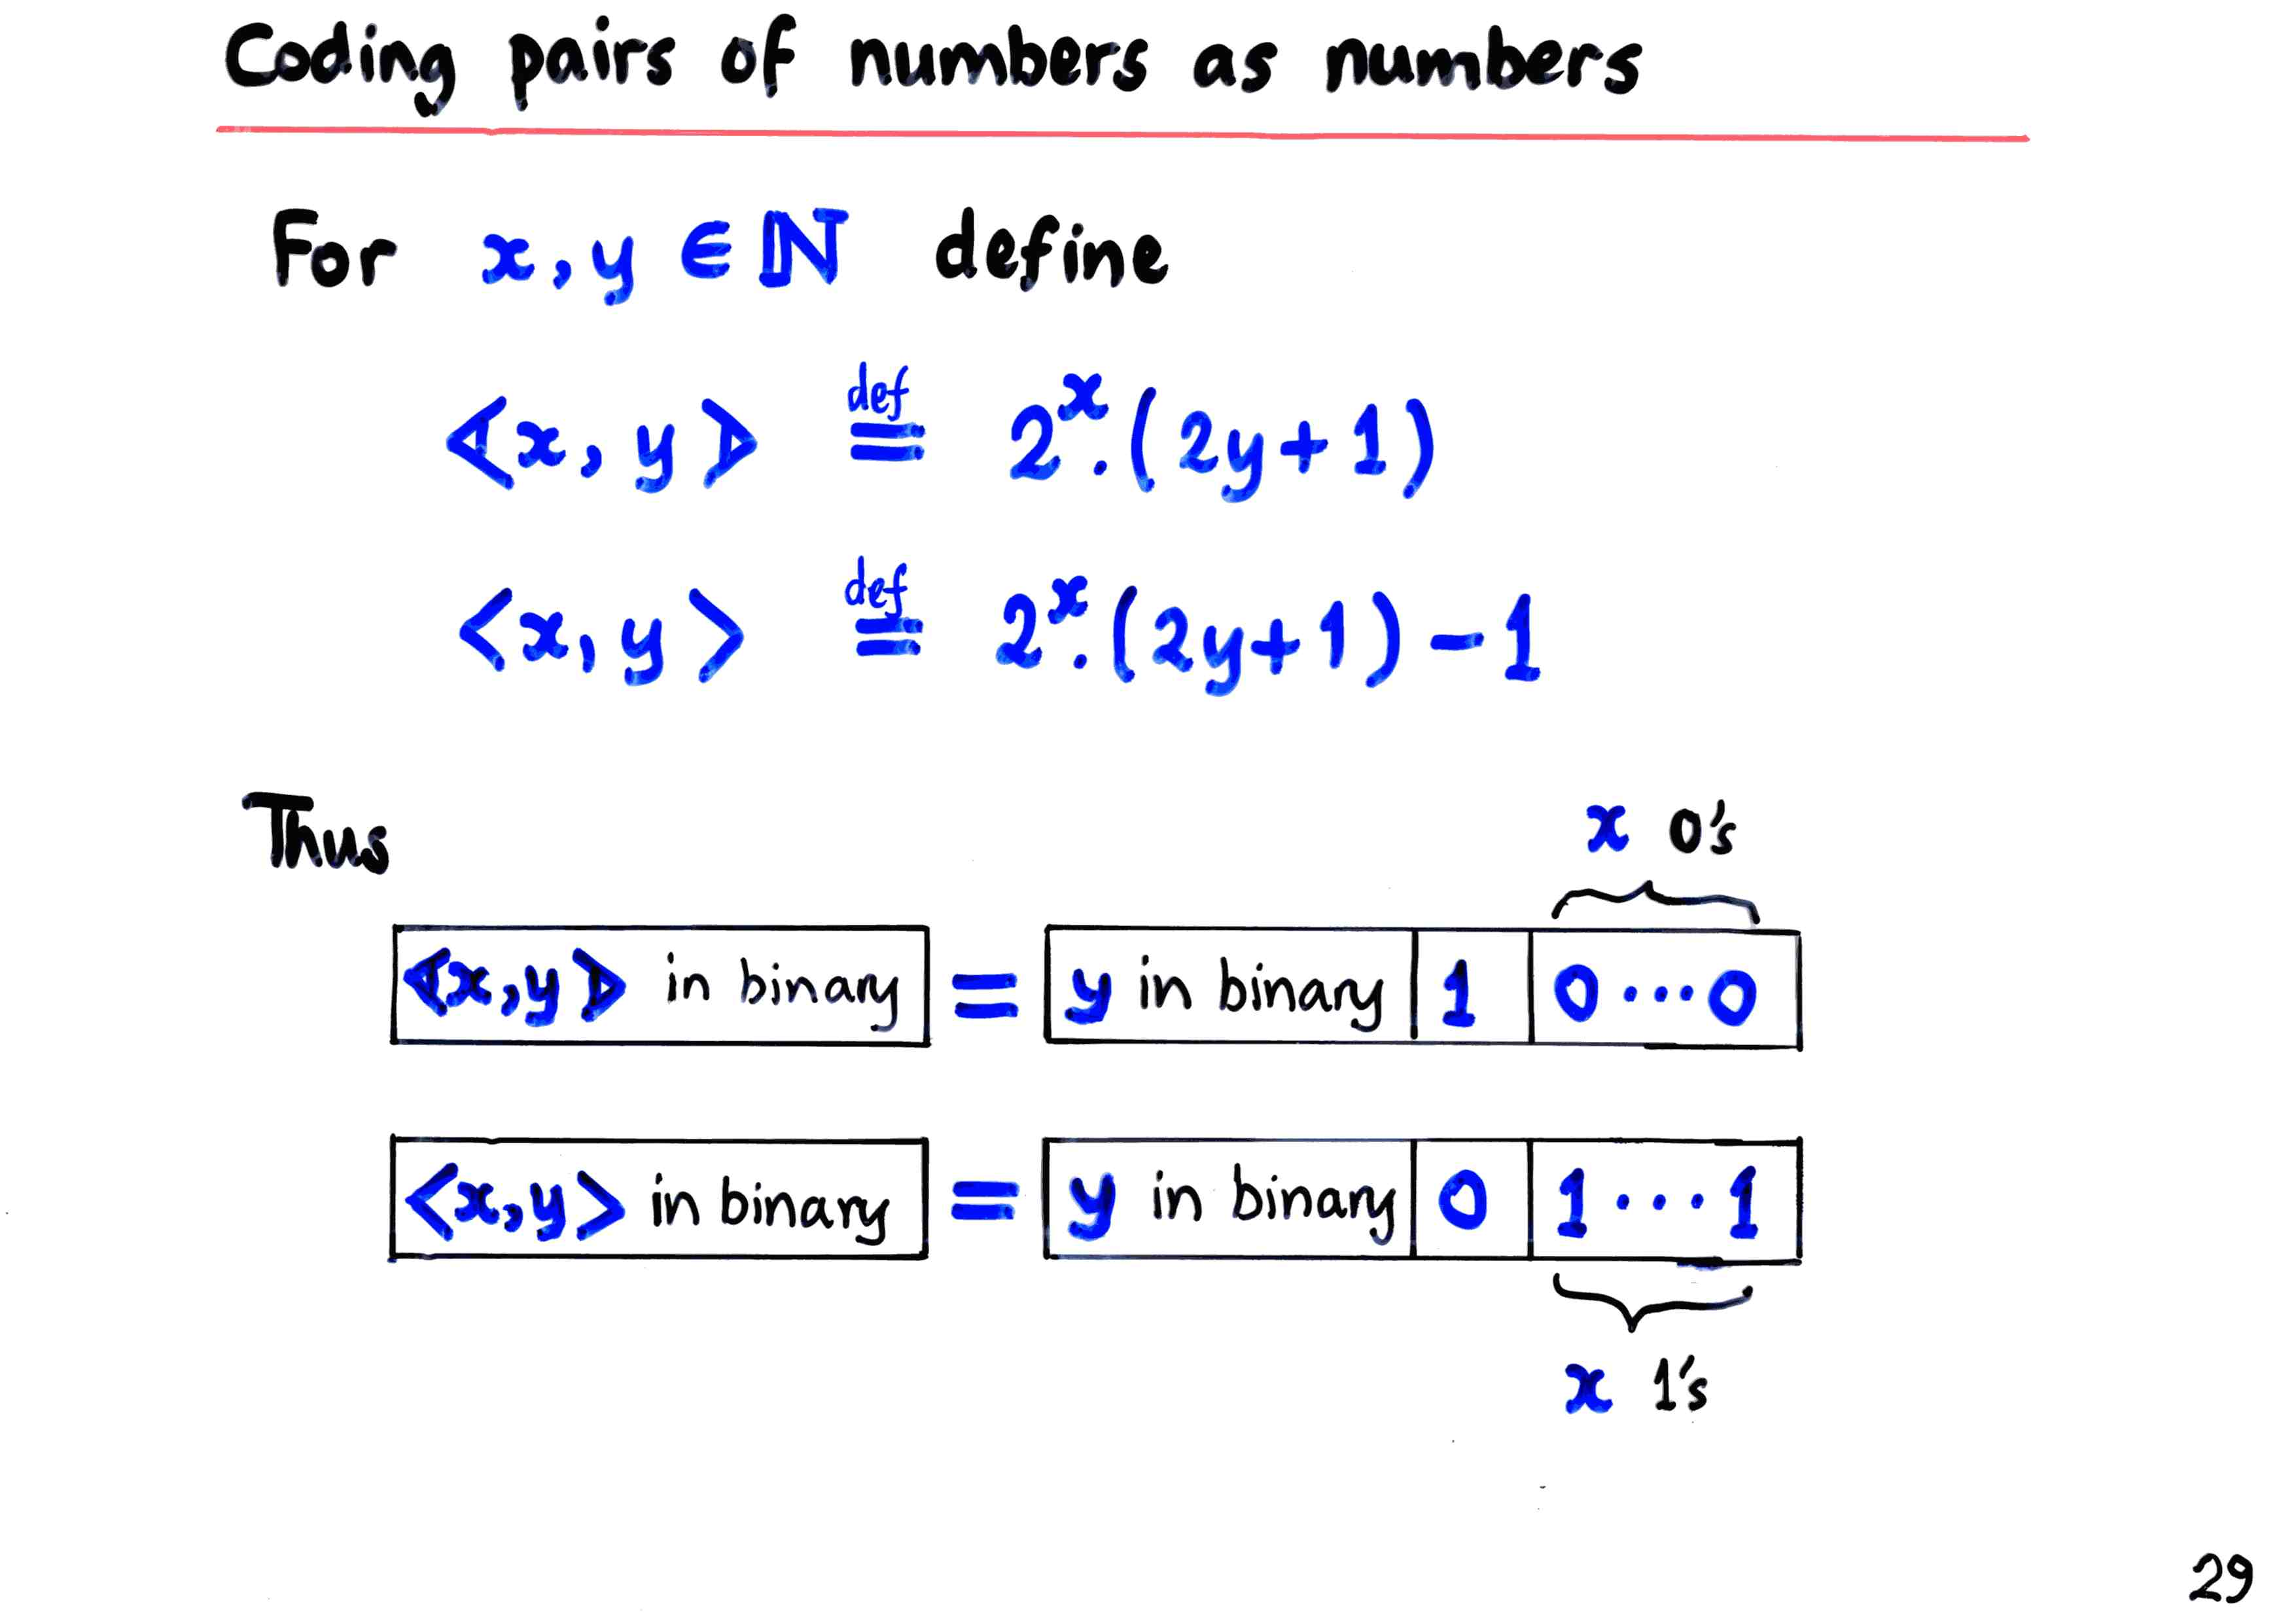 Coding pairs of numbers as numbers
For x, y ∈ ℕ define
⟪x, y⟫ def= 2^x.(2y+1)
<x, y> def= 2^x.(2y+1) - 1
Thus
x 0's
⟪x,y⟫ in binary = y in binary 1 0...0
<x,y> in binary = y in binary 0 1...1
x 1's
29